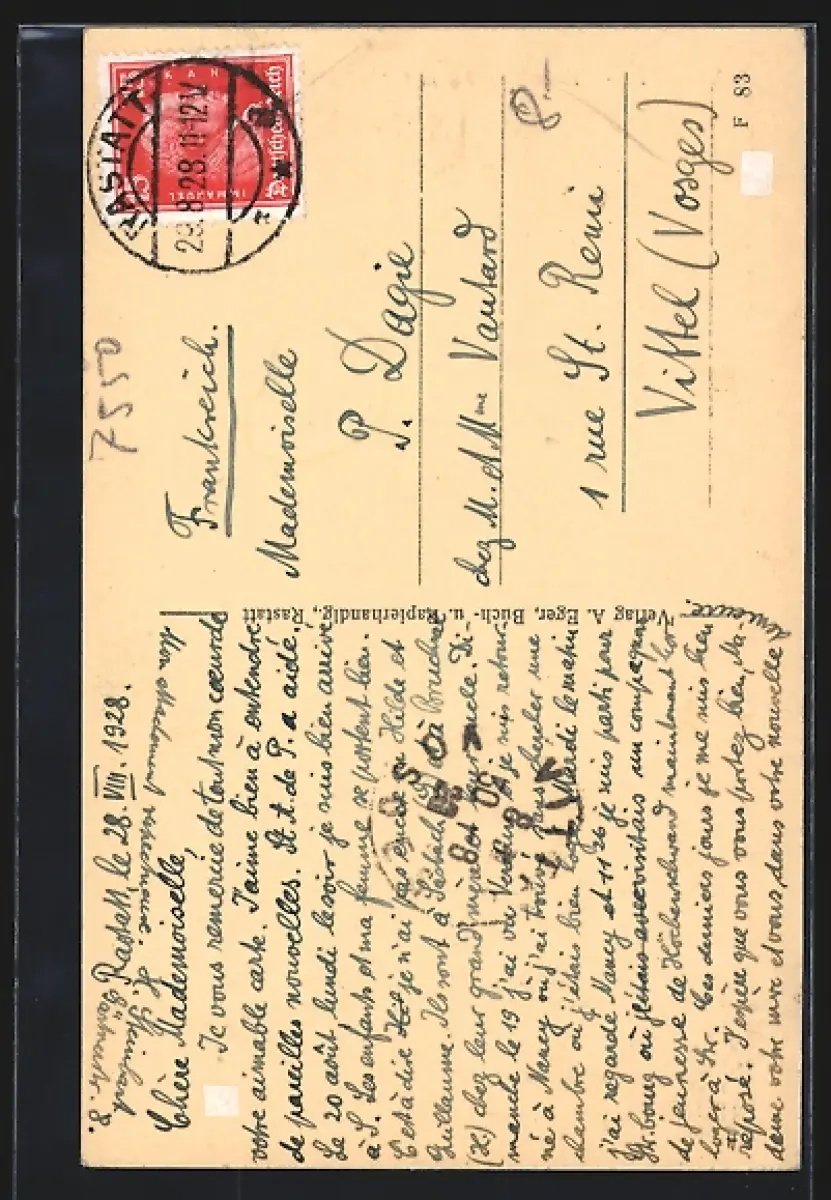 Rastatt, le 28 VIII. 1928.
Chère Mademoiselle,
Je vous remercie de tout mon coeur de
votre aimable carte. J'aime bien à entendre
de pareilles nouvelles. St. t. de P. a aidé.
Le 20 août lundi le soir je suis bien arrivé
à S. Les enfants et ma femme se portent bien.
C'est à dire je n'ai pas encore vu Hilde et
Guillaume. Ils sont à à Bruchsal
(H) chez leur grand'mère et leur oncle. Di-
manche le 19 j'ai vu Verdun, je suis retour-
né à Nancy où j'ai trouvé sans chercher une
chambre où j'étais bien logé. Mardi le matin
j'ai regardé Nancy et 11 26 je suis parti pour
Str.bourg où je visitais un compagnon
de jeunesse de Höchenschwand maintenant
à Str. Ces derniers jours je me suis bien
reposé. J'espère que vous vous portez bien, Ma-
dame votre mère et vous, dans votre nouvelle
demeure.
8.
Verlag A. Eger, Buch- u. Papierhandlg., Rastatt
7550
Frankreich.
Mademoiselle
P. Dagie
chez M. et Mme Vautard
1 rue St. Remi
Vittel (Vosges)
8.-
F 83
RASTATT
29.8.28.11-12V.
Deutsches Reich
IMMANUEL
KANT